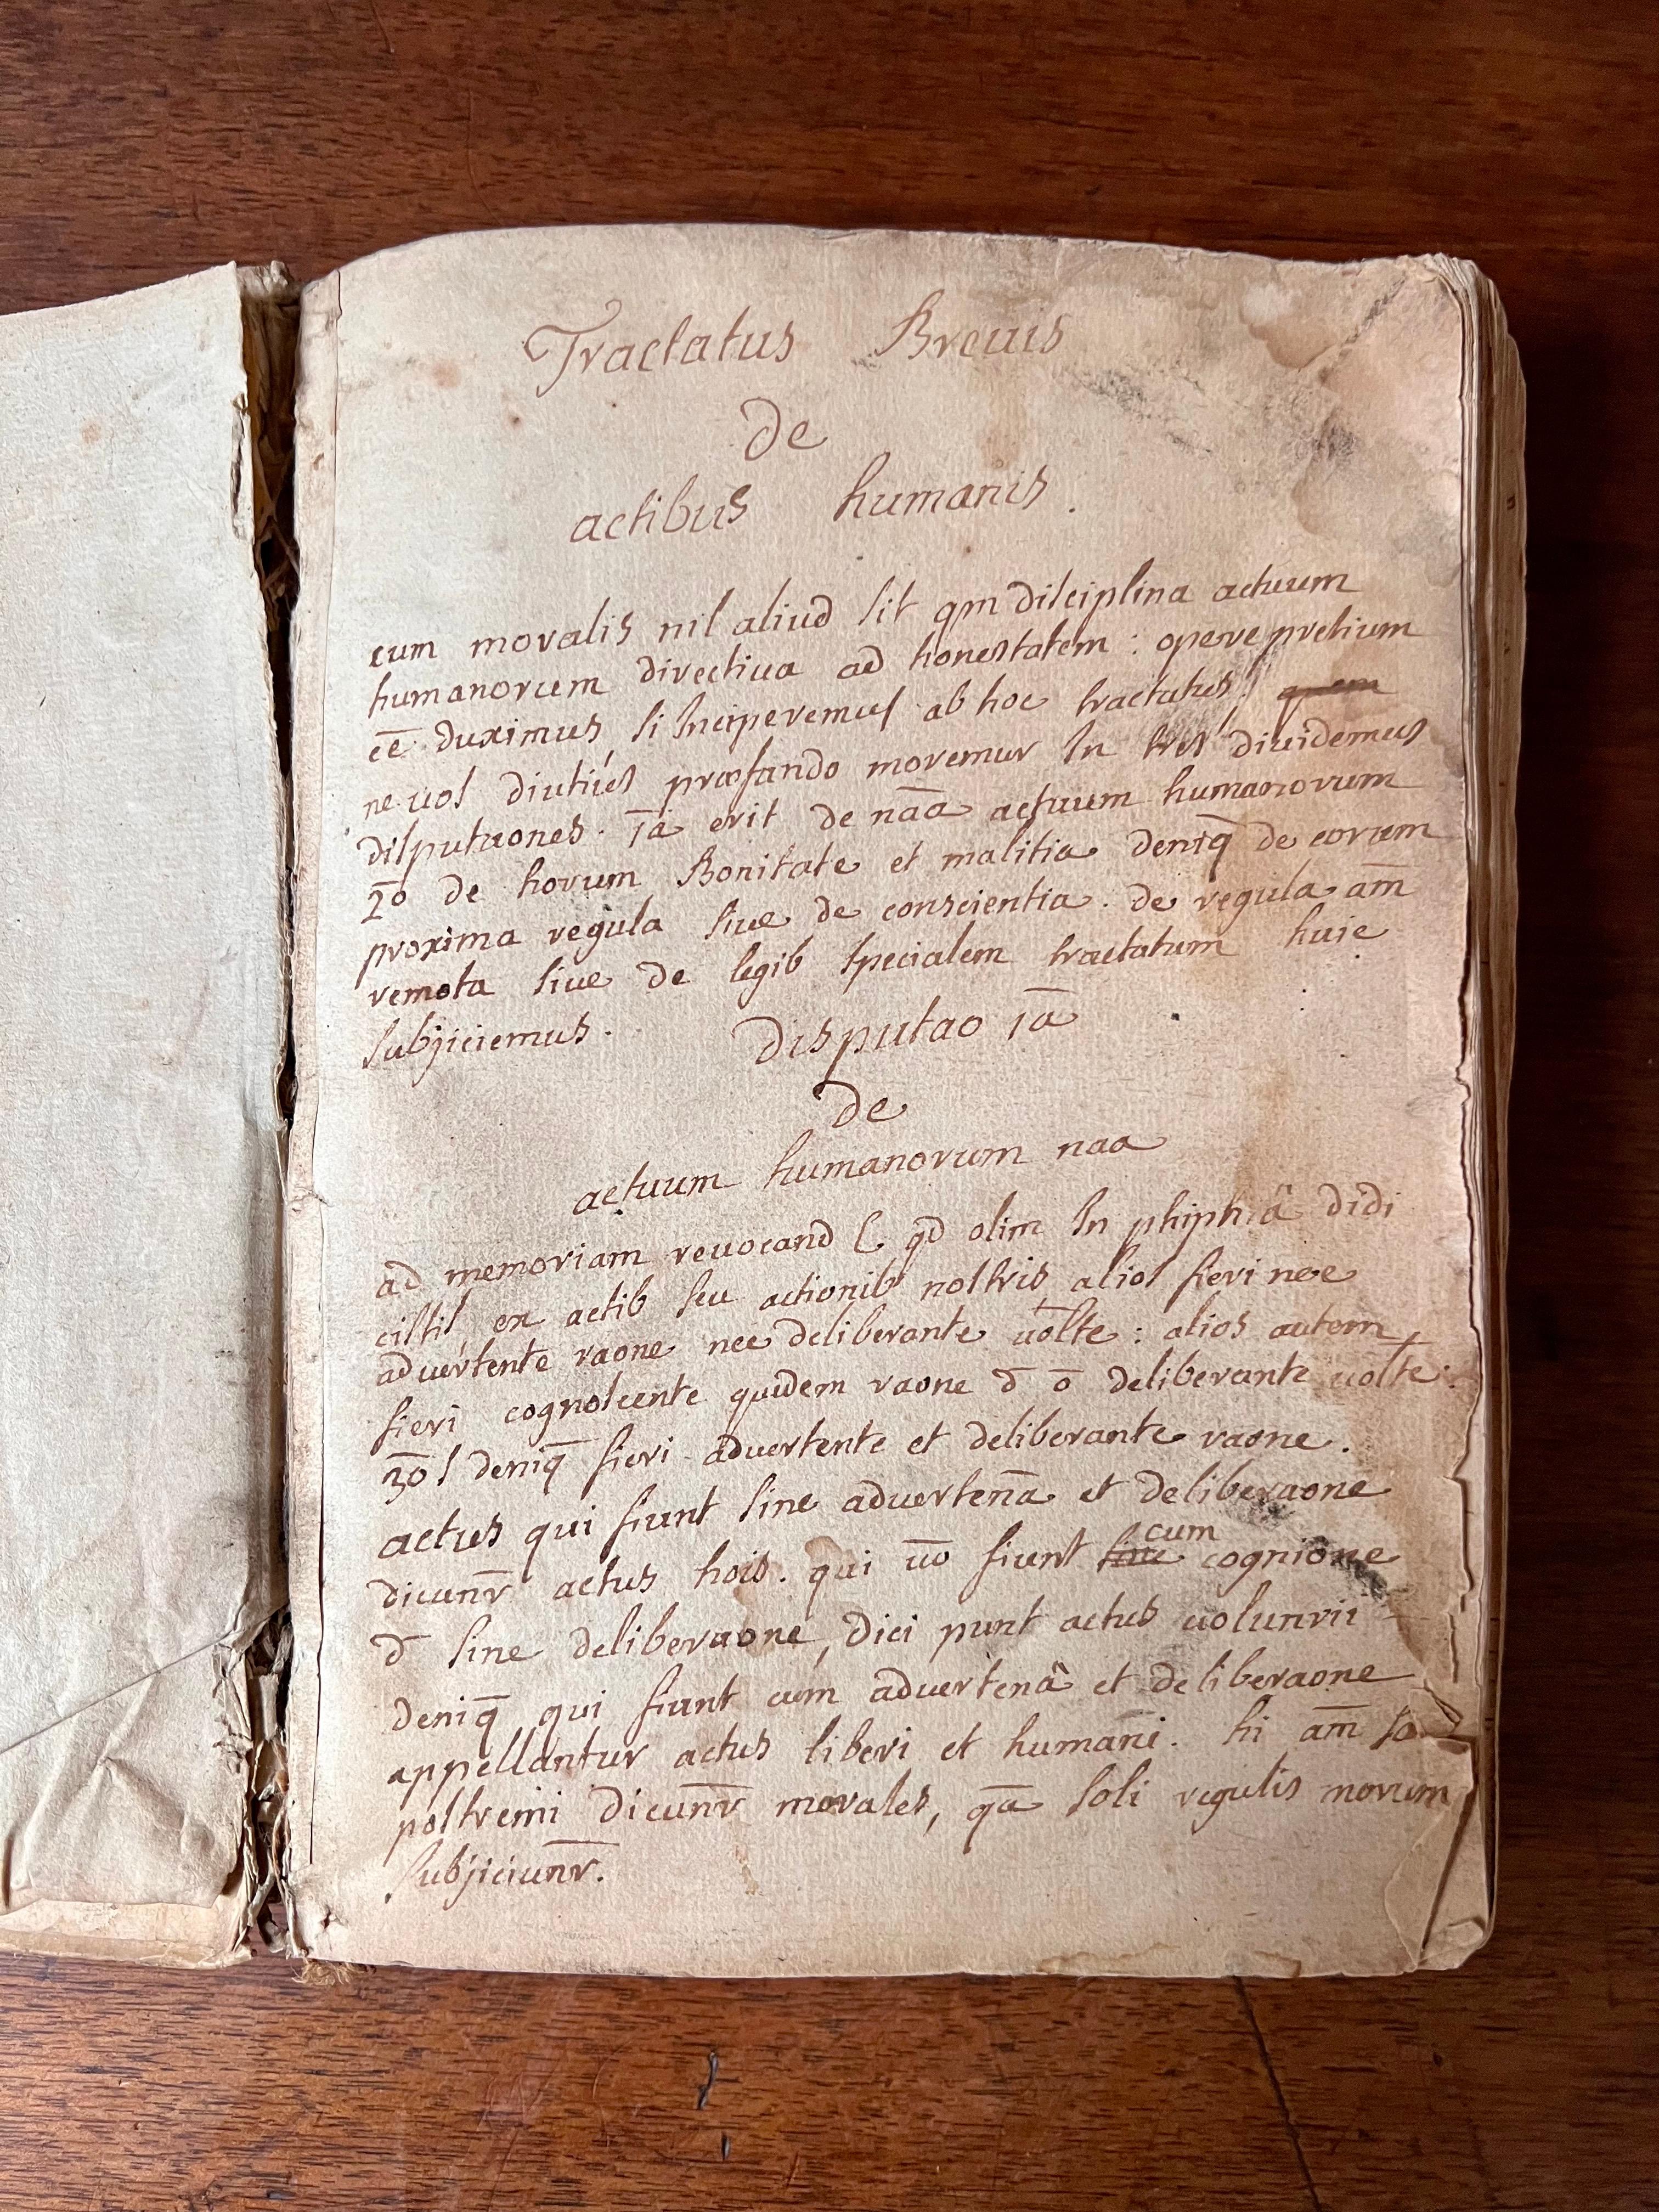 Tractatus Brevis
de
actibus humanis.
cum moralis nil aliud sit qm disciplina actuum
humanorum directiva ad honestatem : opere pretium
eē duximus, si Inciperemus ab hoc tractatus, quem
ne vos diutiùs præfando moremur In tres dividemus
disputaones. 1ā erit de nāa actuum humanorum
2̄o de horum Bonitate et malitia deniq̄ de eorum
proxima regula sive de conscientia. de regula am̄
remota sive de legib specialem tractatum huic
subjiciemus.
Disputao 1ā
de
actuum humanorum naa
ad memoriam revocand qd olim In phiphiâ didi
cistis, ex actib seu actionib nostris alios fieri nec
advertente raone nec deliberante vol̄te : alios autem
fieri cognoscente quidem raone d̄ ō deliberante vol̄te :
3̄os deniq̄ fieri advertente et deliberante raone.
actus qui fiunt sine advertenā et deliberaone
dicunr̄ actus hois. qui ūo fiunt sine cum cognione
d̄ sine deliberaone, dici punt actus volunrii
deniq̄ qui fiunt cum advertenâ et deliberaone
appellantur actus liberi et humani. hi am̄ so
postremi dicunr̄ morales, qā soli regulis morum
subjiciunr̄.